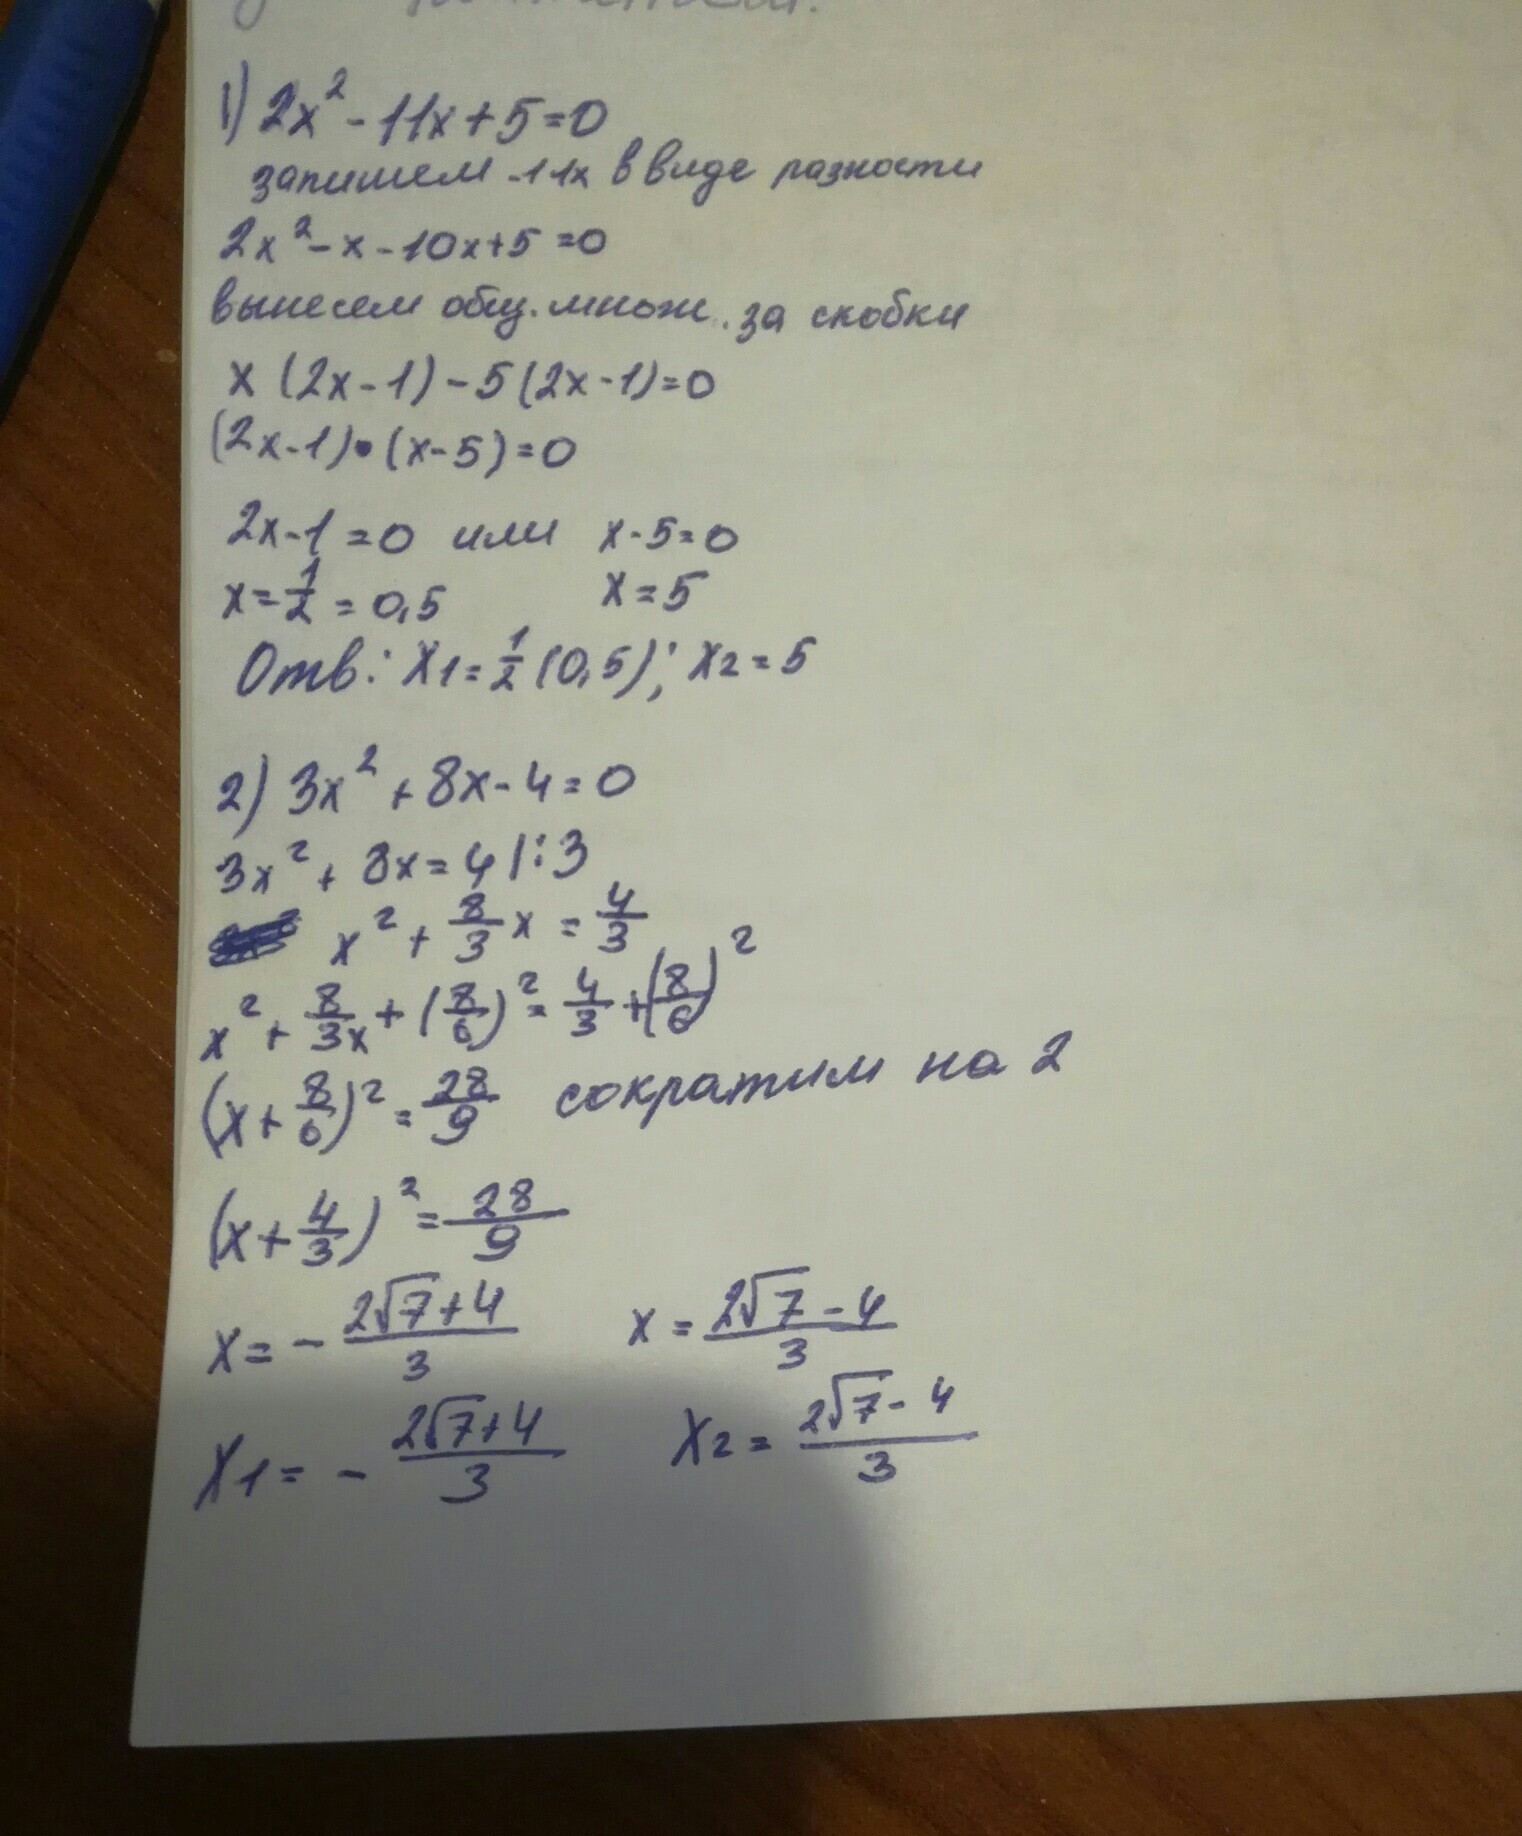 1) 2x² - 11x + 5 = 0
запишем -11x в виде разности
2x² - x - 10x + 5 = 0
вынесем общ. множ. за скобки
x (2x - 1) - 5 (2x - 1) = 0
(2x - 1) • (x - 5) = 0
2x - 1 = 0 или x - 5 = 0
x = 1/2 = 0,5 x = 5
Отв: x1 = 1/2 (0,5); x2 = 5
2) 3x² + 8x - 4 = 0
3x² + 8x = 4 |:3
x² + 8/3 x = 4/3
x² + 8/3x + (8/6)² = 4/3 + (8/6)²
(x + 8/6)² = 28/9 сократим на 2
(x + 4/3)² = 28/9
x = - (2√7 + 4)/3 x = (2√7 - 4)/3
x1 = - (2√7 + 4)/3 x2 = (2√7 - 4)/3